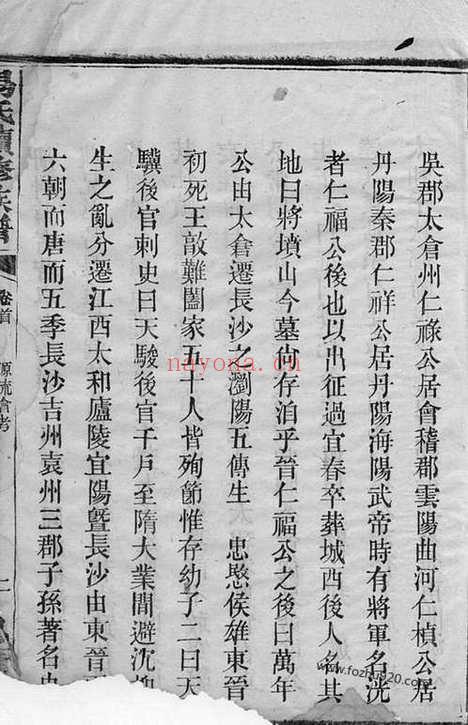 吳郡太倉州仁祿公居會稽郡雲陽曲河仁楨公居
丹陽秦郡仁祥公居丹陽海陽武帝時有將軍名洸
者仁福公後也以出征過宜春卒葬城西後人名其
地曰將墳山今墓尚存洎乎晉仁福公之後曰萬年
公由太倉遷長沙之瀏陽五傳生 忠愍侯雄東晉
初死王敦難闔家五十人皆殉節惟存幼子二曰天
驥後官刺史曰天駿後官千戶至隋大業間避沈
生之亂分遷江西太和廬陵宜陽暨長沙由東晉
六朝而唐而五季長沙吉州袁州三郡子孫著名
氏續修族譜
卷首 源流會考
nayona.cn
www.fozhu920.com